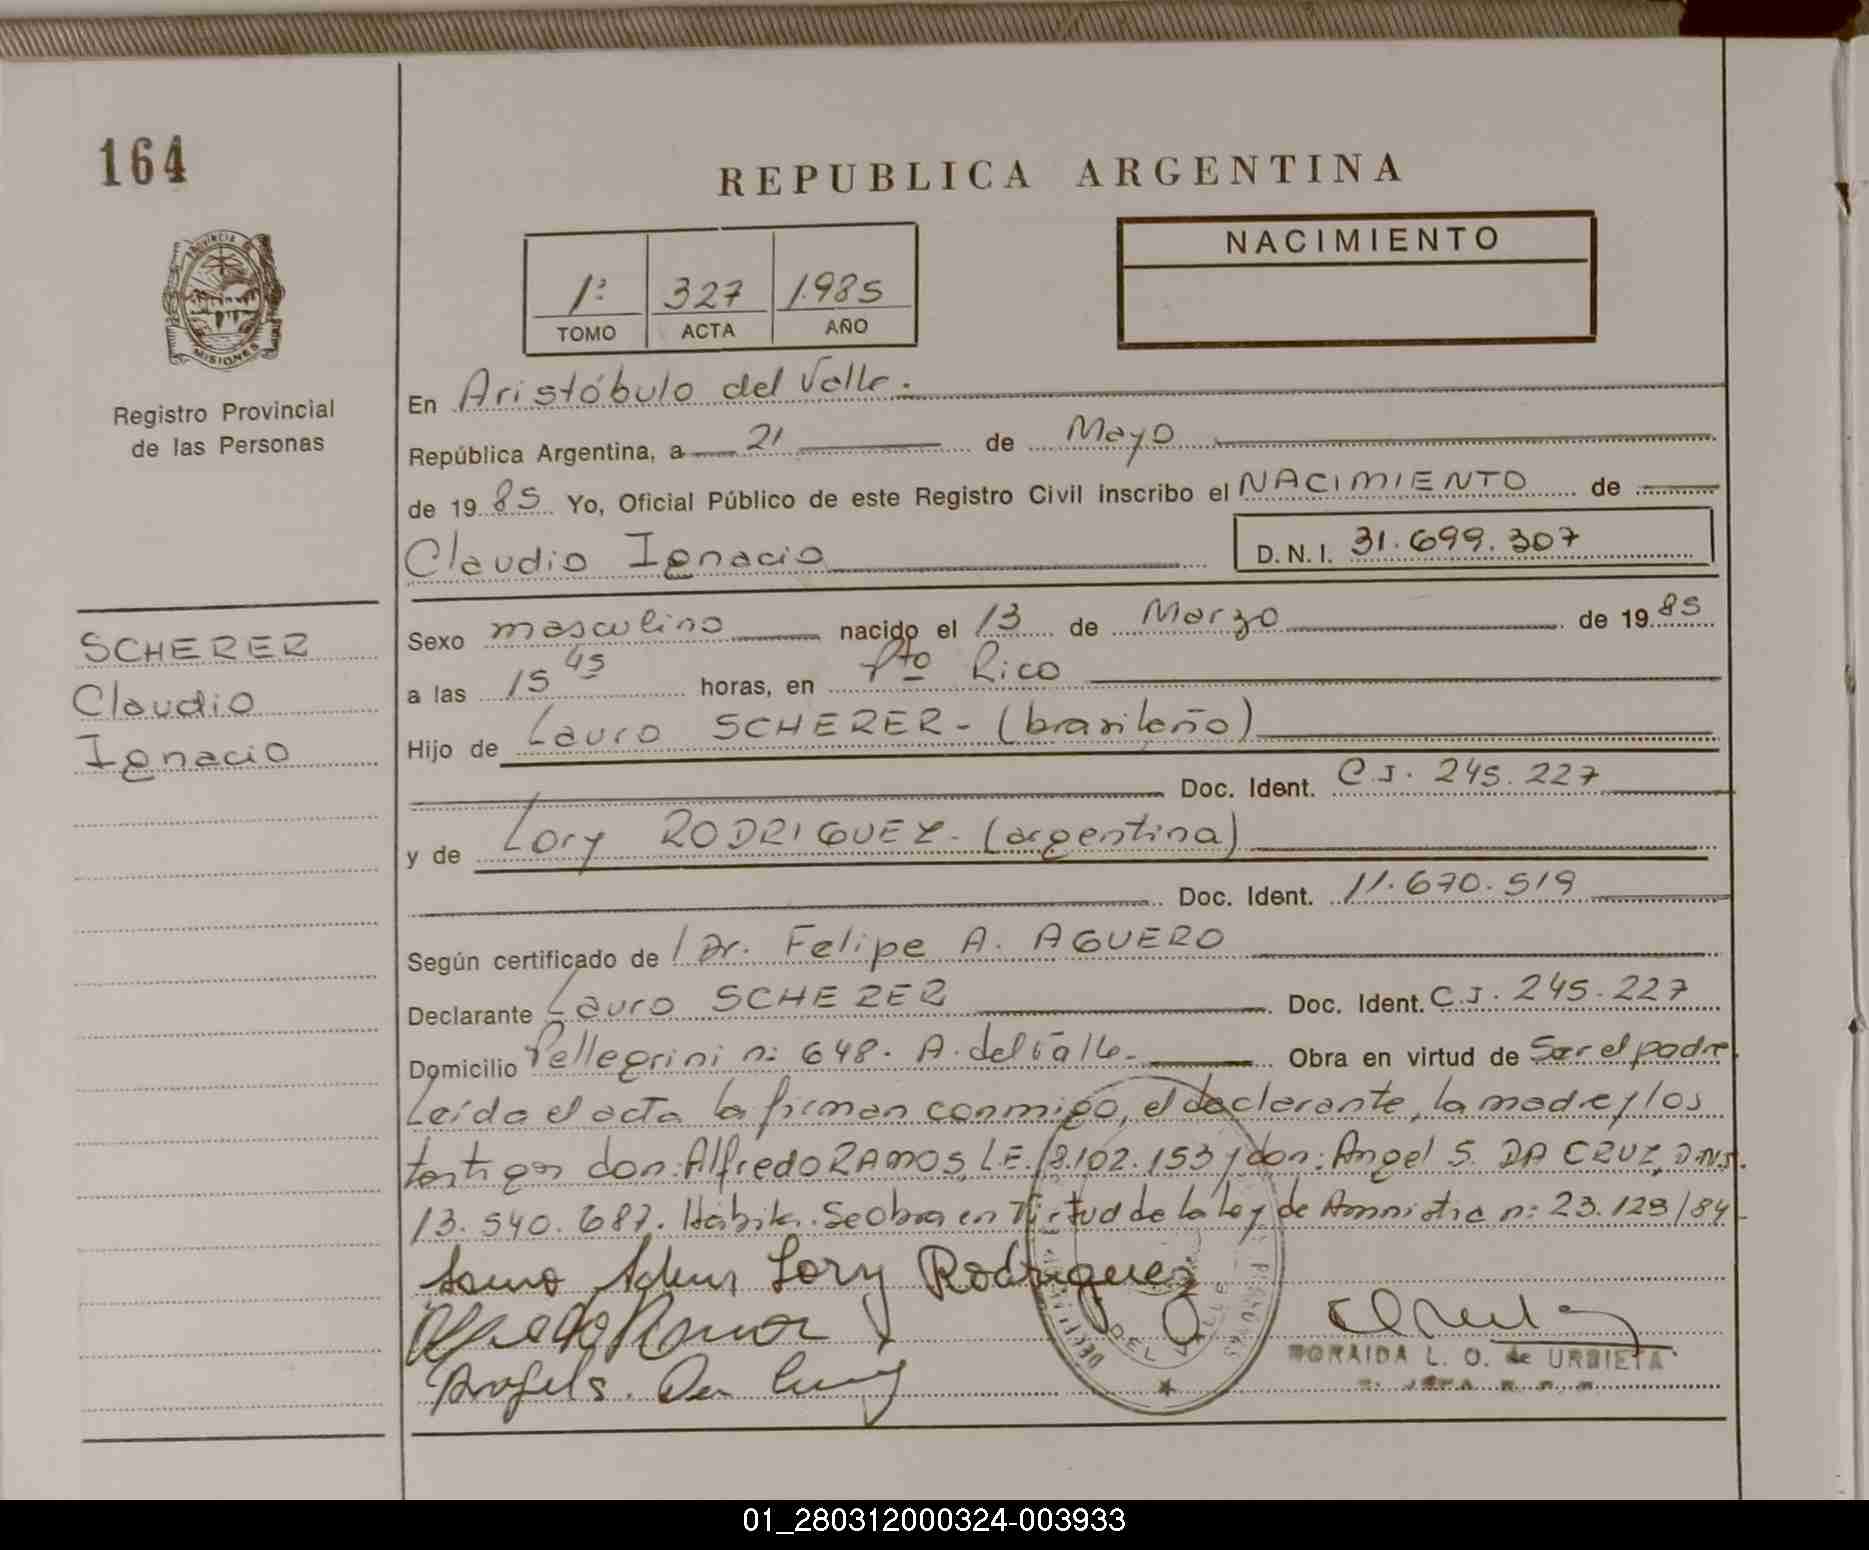 164
REPUBLICA ARGENTINA
PROVINCIA DE
MISIONES
Registro Provincial
de las Personas
1º 327 1.985
TOMO ACTA AÑO
NACIMIENTO
En Aristóbulo del Valle.
República Argentina, a 21 de Mayo
de 19 85 Yo, Oficial Público de este Registro Civil inscribo el NACIMIENTO de
Claudio Ignacio D.N.I. 31.699.307
SCHERER
Claudio
Ignacio
Sexo masculino nacido el 13 de Marzo de 19 85
a las 15 45 horas, en Pto Rico
Hijo de Lauro SCHERER - (brasileño)
Doc. Ident. C.I. 245.227
y de Lory RODRIGUEZ - (argentina)
Doc. Ident. 11.670.519
Según certificado de Dr. Felipe A. AGUERO
Declarante Lauro SCHERER Doc. Ident. C.I. 245.227
Domicilio Pellegrini nº 648. A. del Valle - Obra en virtud de Ser el padre
Leída el acta la firman conmigo, el declarante, la madre y los
testigos don: Alfredo RAMOS, L.E. 8.102.153 y don: Angel S. DA CRUZ, D.N.I.
13.540.687. Hábiles. Se Obra en Virtud de la Ley de Amnistia nº 23.129/84
Lory Rodriguez
Alfredo Ramos
DEL VALLE
L. O. de URBIETA
01_280312000324-003933